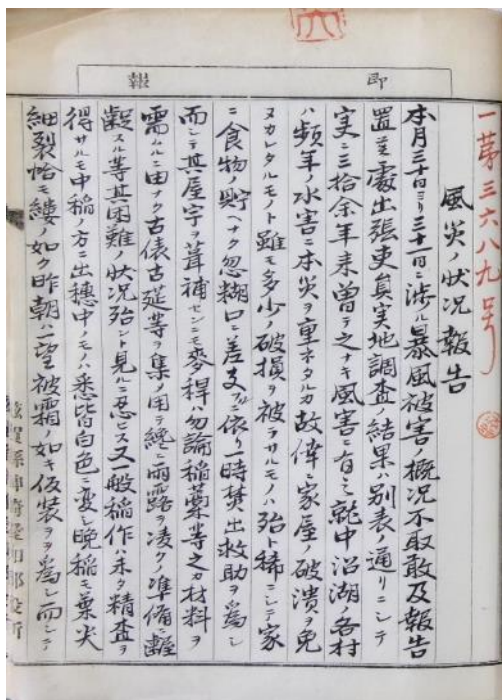 即報
一第三六八九号
風災ノ状況報告
本月三十日ヨリ三十一日ニ渉ル暴風被害ノ概況不取敢及報告
置候處出張吏員実地調査ノ結果ハ別表ノ通リニシテ
実ニ三拾余年来曽テ之ナキ風害ニ有之就中沿湖ノ各村
ハ頻年ノ水害ニ本災ヲ重ネタルカ故偉ニ家屋ノ破潰ヲ免
ヌカレタルモノト雖モ多少ノ破損ヲ被ラサルモノハ殆ト稀ニシテ家
ニ食物貯ヘナク忽糊口ニ差支フルニ依リ一時焚出救助ヲ為シ
而シテ其屋宇ヲ葺補セシニモ麥稈ハ勿論稲藁等之カ材料ヲ
需ムルニ由ナク古俵古莚等ヲ集メ用テ纔ニ雨露ヲ凌クノ準備ニ齷
齪スル等其困難ノ状況殆ント見ルニ忍ビス又一般稲作ハ未タ精査ヲ
得サルモ中稲ノ方ニ出穂中ノモノハ悉皆白色ニ変シ晩稲モ葉尖
細裂恰モ縷ノ如ク昨朝ハ一望被霜ノ如キ仮装ヲ為シ而シテ
滋賀縣神崎愛知郡役所